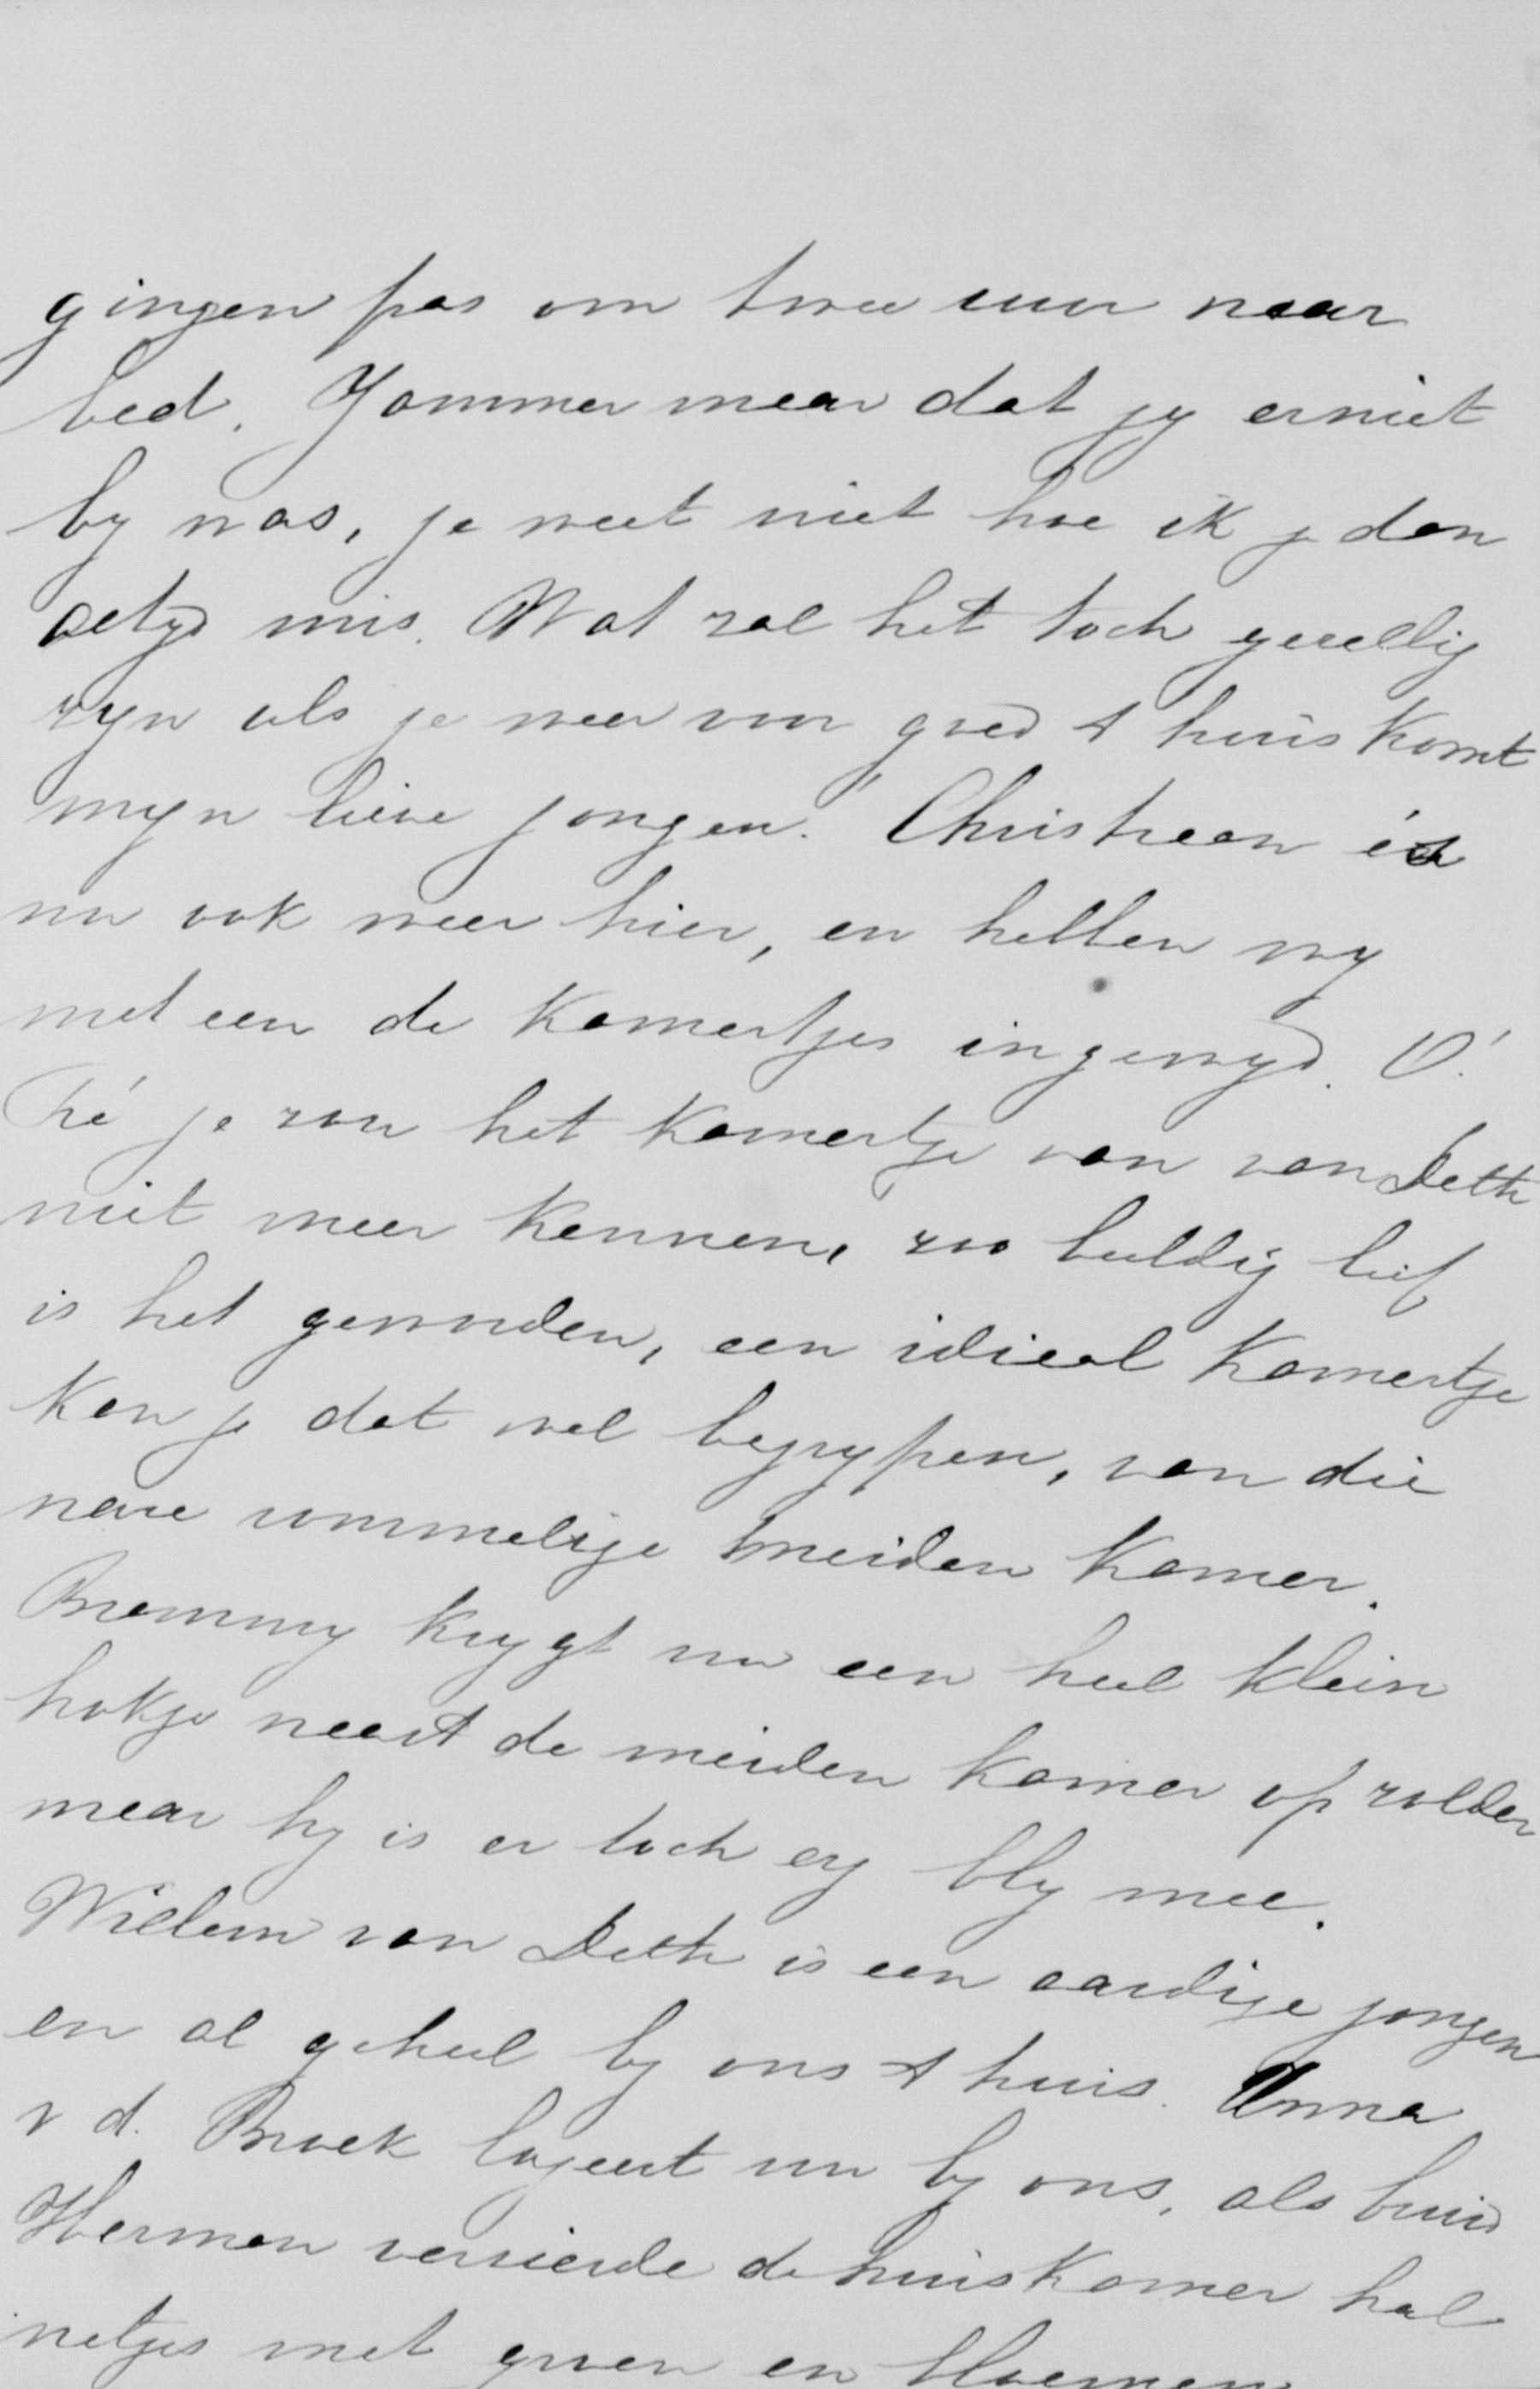 gingen pas om twee uur naar
bed. Jammer maar dat jy erniet
by was, je weet niet hoe ik je dan
altyd mis. Wat zal het toch gezellig
zyn als je weer voor goed t huis komt
myn lieve jongen! Christiaan is
nu ook weer hier, en hebben wy
met een de kamertjes ingewyd. O!
Thé je zou het kamertje van van Deth
niet meer kennen, zoo beeldig lief
is het geworden, een idieal kamertje
kan je dat wel begrypen, van die
nare rommelige meiden kamer.
Brammy krygt nu een heel klein
hokje naast de meiden kamer op zolder
maar hy is er toch erg bly mee.
Willem van Deth is een aardige jongen
en al geheel by ons t huis. Anna
v d. Broek logeert nu by ons, als bruid
Herman versierde de huiskamer hal
netjes met groen en bloemen